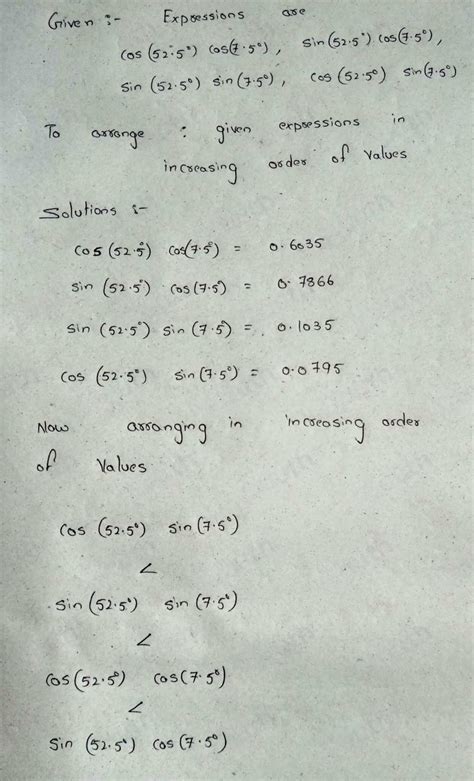 Given :- Expressions are
cos (52.5°) cos(7.5°) , sin(52.5°) cos(7.5°) ,
sin (52.5°) sin(7.5°) , cos (52.5°) sin(7.5°)
To arrange : given expressions in
increasing order of values
Solutions :-
cos (52.5°) cos(7.5°) = 0.6035
sin (52.5°) cos(7.5°) = 0.7866
sin (52.5°) sin(7.5°) = 0.1035
cos (52.5°) sin(7.5°) = 0.0795
Now arranging in increasing order
of values
cos (52.5°) sin(7.5°)
<
sin (52.5°) sin(7.5°)
<
cos(52.5°) cos(7.5°)
<
sin (52.5°) cos(7.5°)